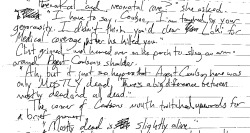 and neonatal care?" she asked.
"I have to say, Coulson, I'm touched by your
generosity. I didn't think you'd clear Loki for
Medical coverage after he killed you."
Clint grinned and leaned over on the porch to sling an arm
around Agent Coulson's shoulder.
"Ah, but it just so happens that Agent Coulson here was
only MOSTLY dead. There's a big difference between
mostly dead and all dead."
The corner of Coulson's mouth twitched upwards for
a brief moment.
"Mostly dead is slightly alive."